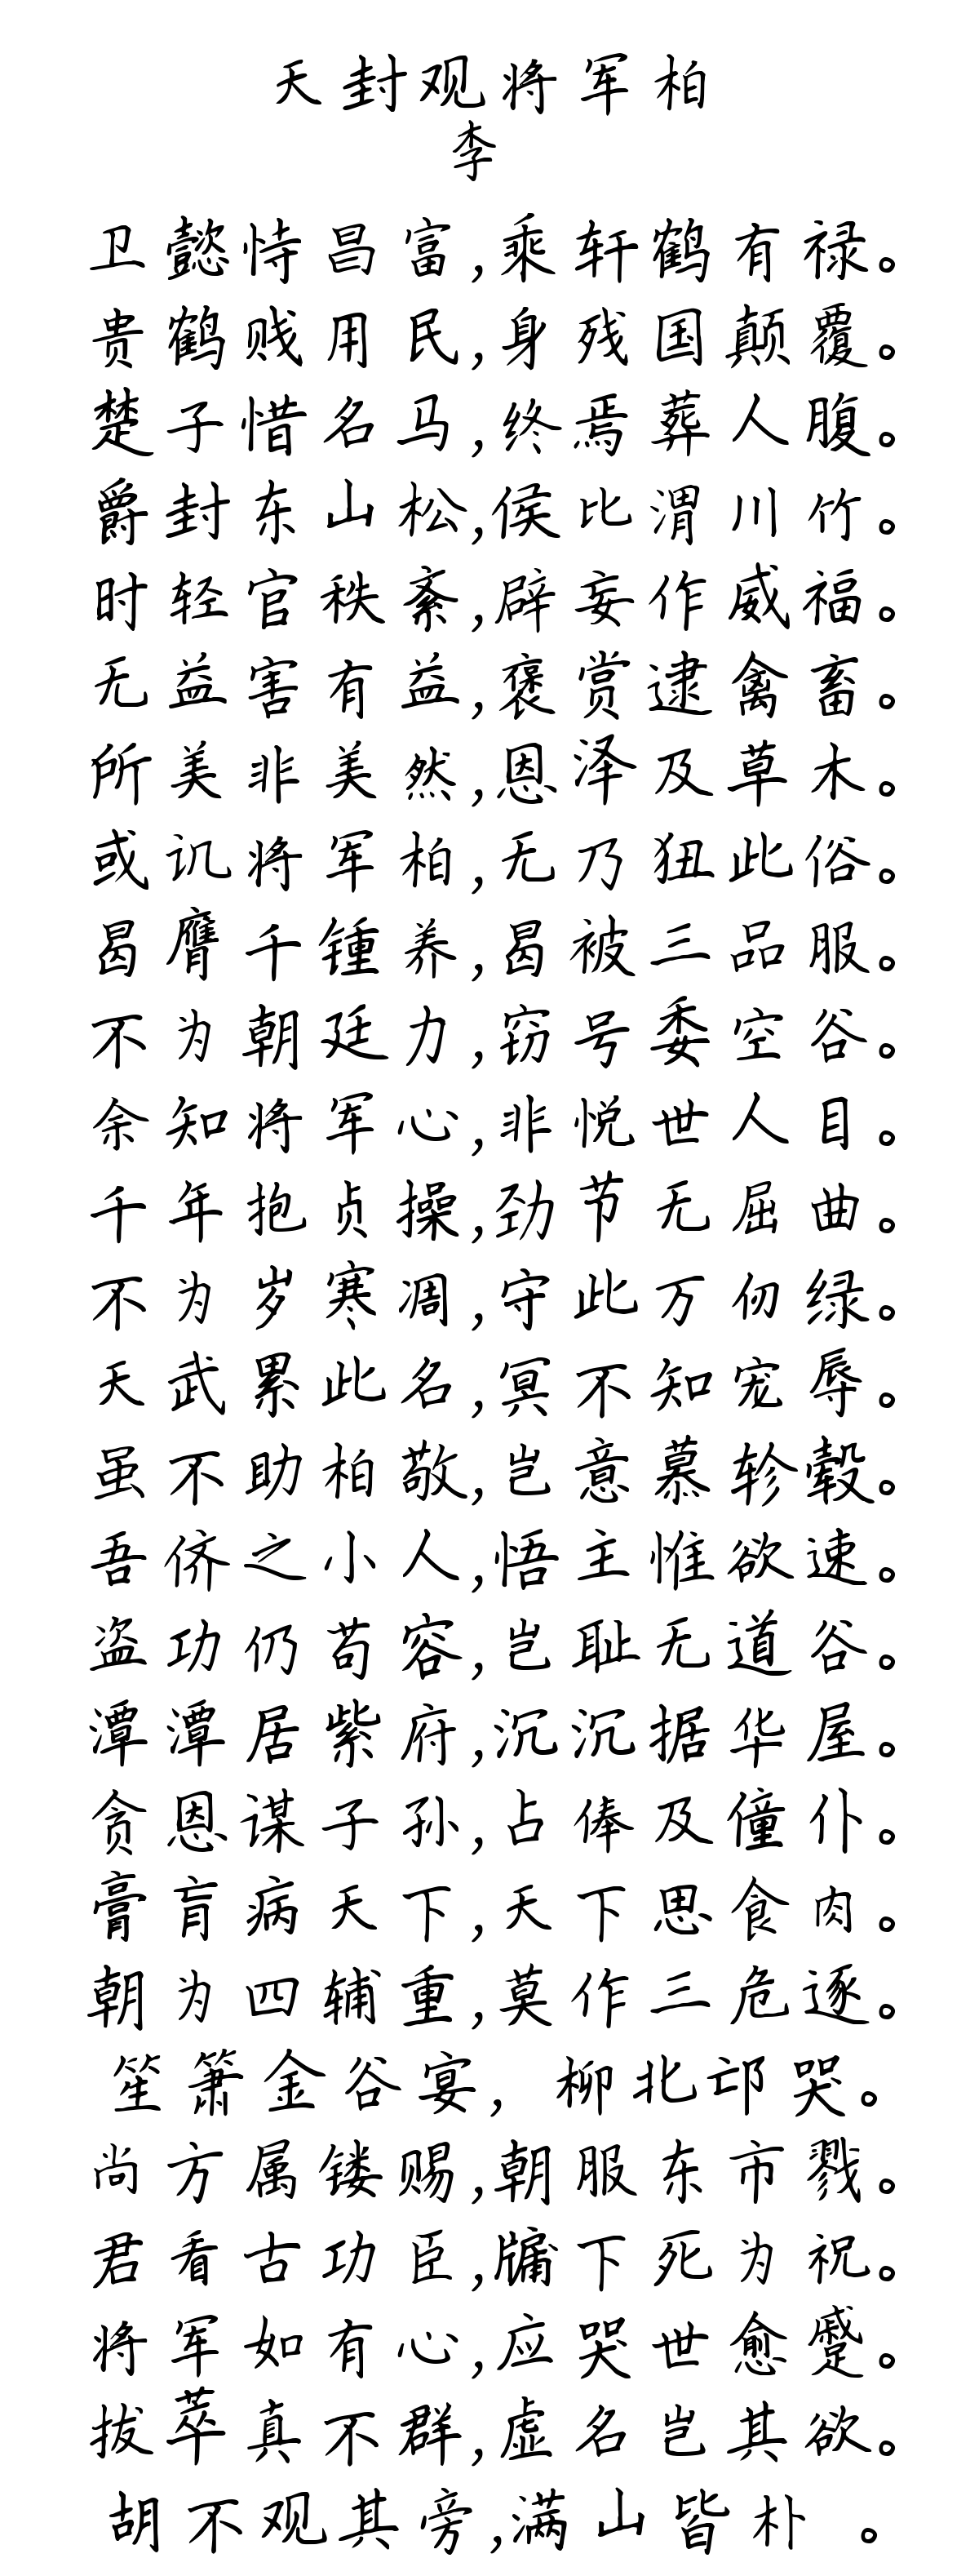 天封观将军柏
李
卫懿恃昌富,乘轩鹤有禄。
贵鹤贱用民,身残国颠覆。
楚子惜名马,终焉葬人腹。
爵封东山松,侯比渭川竹。
时轻官秩紊,辟妄作威福。
无益害有益,褒赏逮禽畜。
所美非美然,恩泽及草木。
或讥将军柏,无乃狃此俗。
曷膺千锺养,曷被三品服。
不为朝廷力,窃号委空谷。
余知将军心,非悦世人目。
千年抱贞操,劲节无屈曲。
不为岁寒凋,守此万仞绿。
天武累此名,冥不知宠辱。
虽不助柏敬,岂意慕轸毂。
吾侪之小人,悟主惟欲速。
盗功仍苟容,岂耻无道谷。
潭潭居紫府,沉沉据华屋。
贪恩谋子孙,占俸及僮仆。
膏肓病天下,天下思食肉。
朝为四辅重,莫作三危逐。
笙箫金谷宴,柳北邙哭。
尚方属镂赐,朝服东市戮。
君看古功臣,牖下死为祝。
将军如有心,应哭世愈蹙。
拔萃真不群,虚名岂其欲。
胡不观其旁,满山皆朴 。